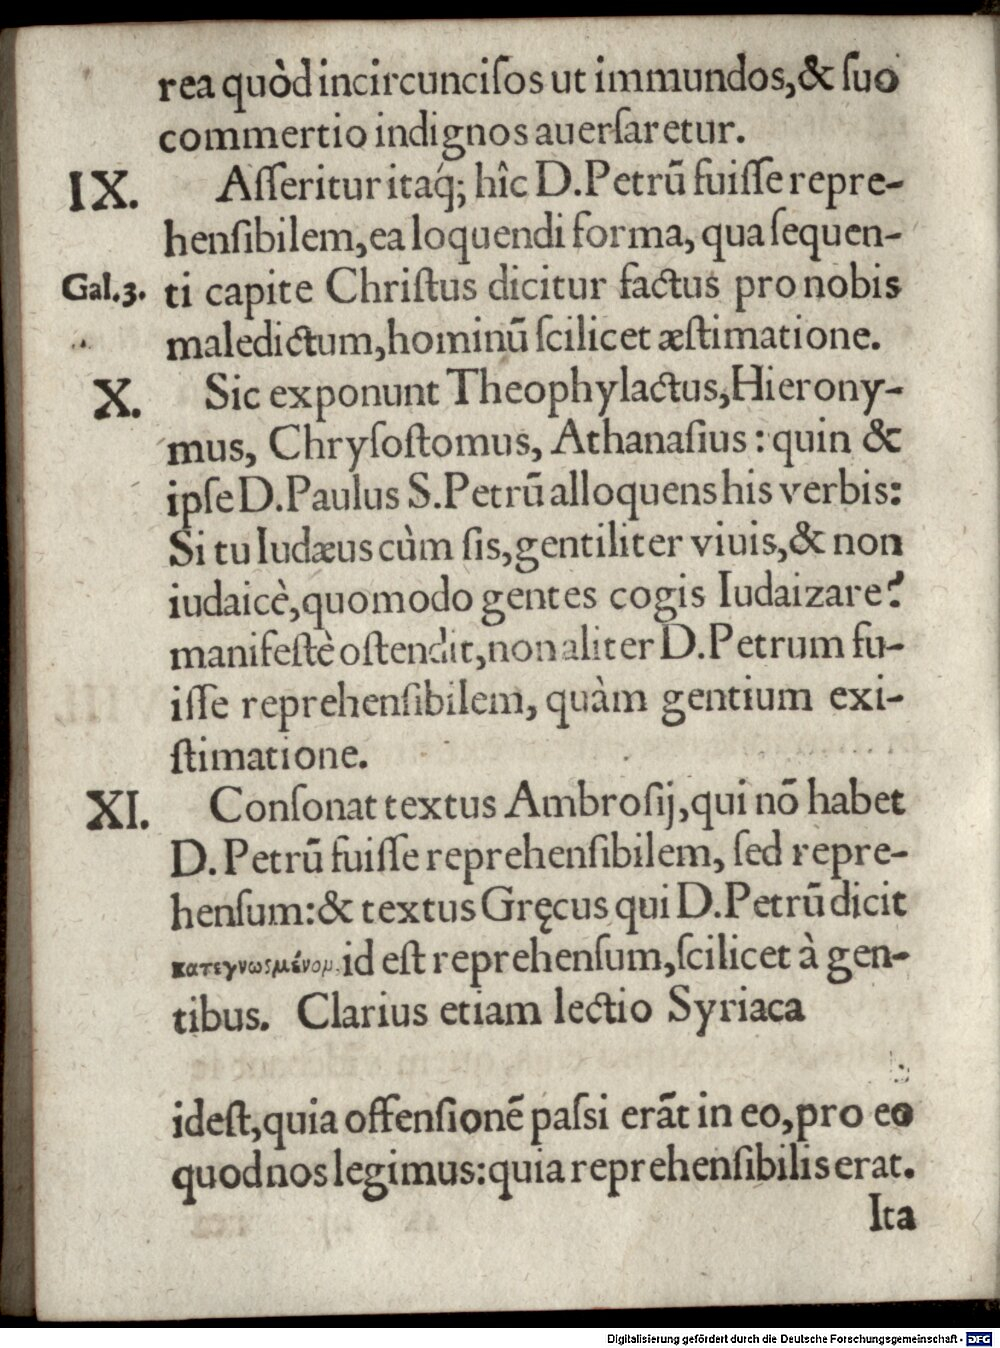 rea quòd incircunciſos ut immundos,& ſuo
commertio indignos auerſaretur.
IX. Aſſeritur itaq́; hîc D.Petrũ fuiſſe repre-
henſibilem,ea loquendi forma, qua ſequen-
Gal.3. ti capite Chriſtus dicitur factus pro nobis
maledictum,hominũ ſcilicet æſtimatione.
X. Sic exponunt Theophylactus,Hierony-
mus, Chryſoſtomus, Athanaſius : quin &
ipſe D.Paulus S.Petrũ alloquens his verbis:
Si tu Iudæus cùm ſis,gentiliter viuis,& non
iudaicè,quomodo gentes cogis Iudaizare?
manifeſtè oſtendit,non aliter D.Petrum fu-
iſſe reprehenſibilem, quàm gentium exi-
ſtimatione.
XI. Conſonat textus Ambroſij,qui nõ habet
D.Petrũ fuiſſe reprehenſibilem, ſed repre-
henſum:& textus Gręcus qui D.Petrũ dicit
κατεγνωσμένον.id eſt reprehenſum,ſcilicet à gen-
tibus. Clarius etiam lectio Syriaca
ideſt,quia offenſionẽ paſsi erãt in eo,pro eo
quod nos legimus:quia reprehenſibilis erat.
Ita
Digitalisierung gefördert durch die Deutsche Forschungsgemeinschaft - DFG